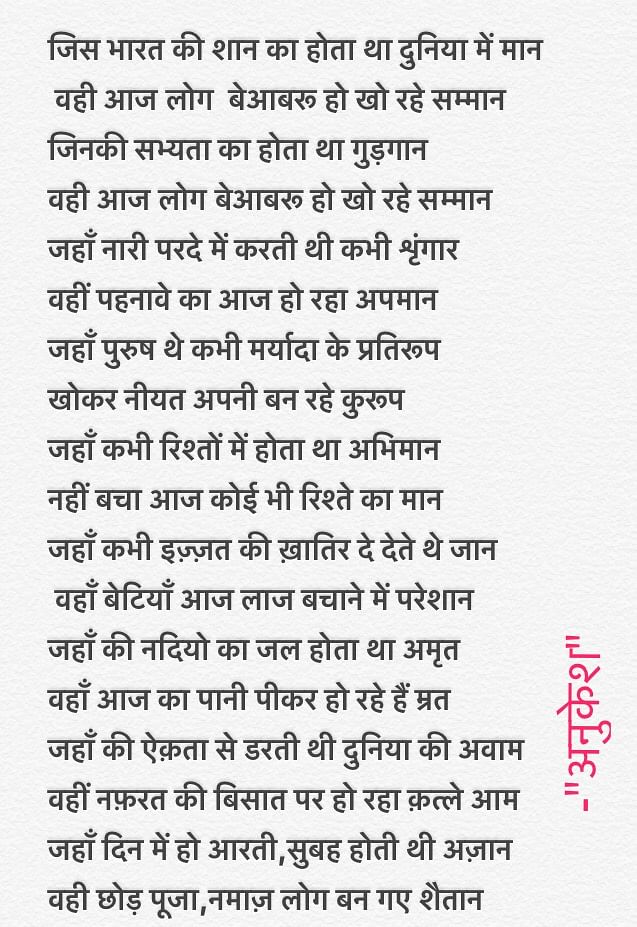 जिस भारत की शान का होता था दुनिया में मान
वही आज लोग बेआबरू हो खो रहे सम्मान
जिनकी सभ्यता का होता था गुड़गान
वही आज लोग बेआबरू हो खो रहे सम्मान
जहाँ नारी परदे में करती थी कभी शृंगार
वहीं पहनावे का आज हो रहा अपमान
जहाँ पुरुष थे कभी मर्यादा के प्रतिरूप
खोकर नीयत अपनी बन रहे कुरूप
जहाँ कभी रिश्तों में होता था अभिमान
नहीं बचा आज कोई भी रिश्ते का मान
जहाँ कभी इज़्ज़त की ख़ातिर दे देते थे जान
वहाँ बेटियाँ आज लाज बचाने में परेशान
जहाँ की नदियो का जल होता था अमृत
वहाँ आज का पानी पीकर हो रहे हैं म्रत
जहाँ की ऐक़ता से डरती थी दुनिया की अवाम
वहीं नफ़रत की बिसात पर हो रहा क़त्ले आम
जहाँ दिन में हो आरती,सुबह होती थी अज़ान
वही छोड़ पूजा,नमाज़ लोग बन गए शैतान
-"अनुकेश"